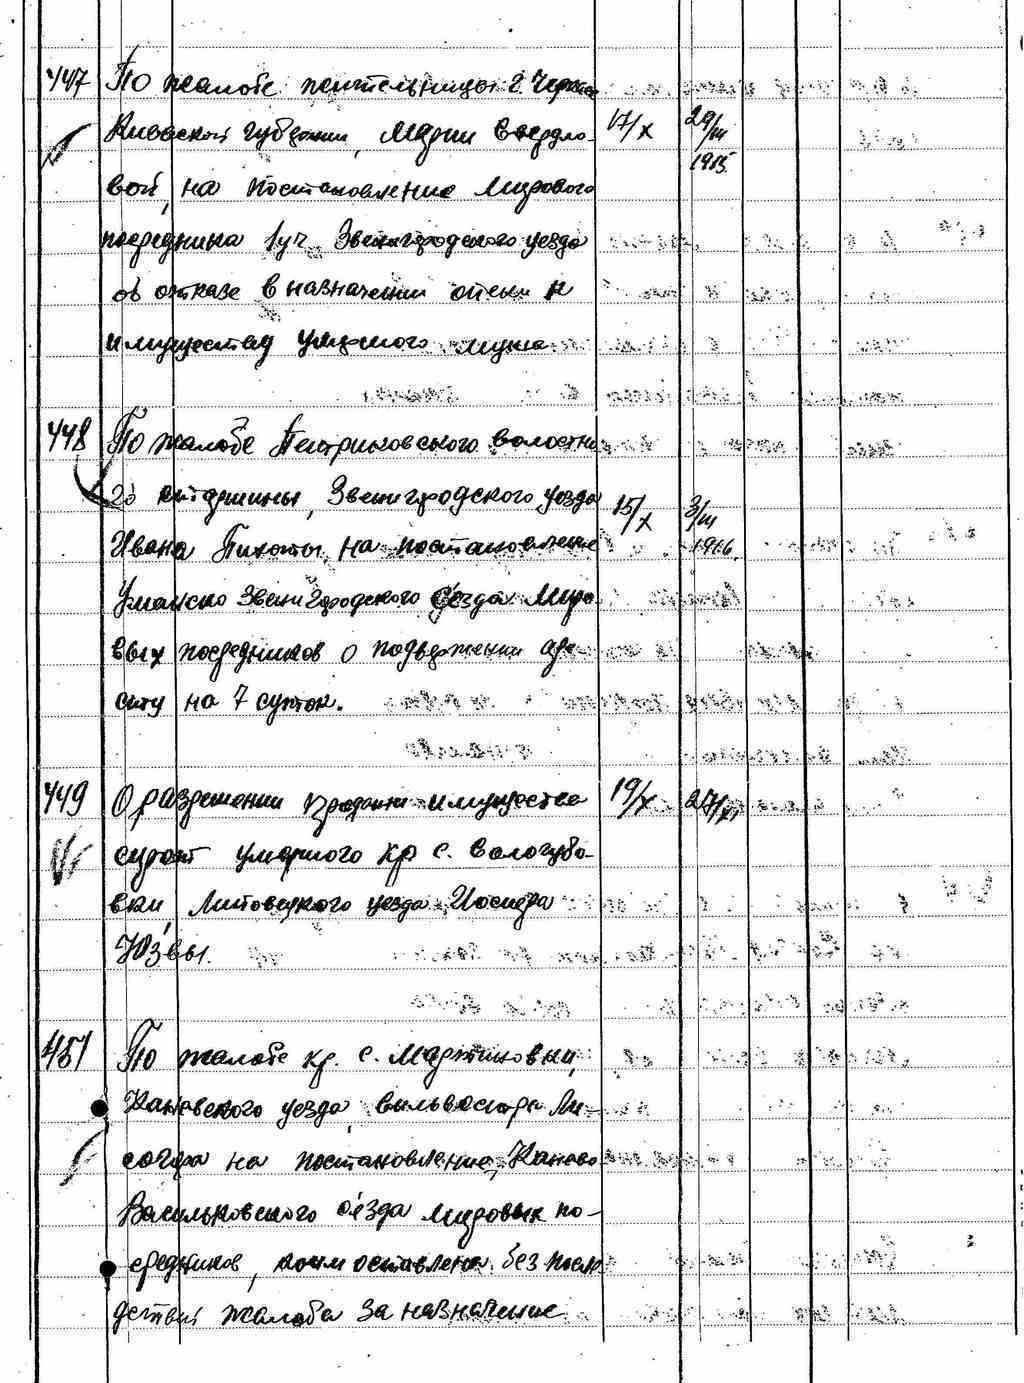 447 По жалобе жительницы г. Черкас
Киевской губернии, Марии Свердло- 17/X 29/III
вой, на постановление Мирового 1915.
посредника 1 уч. Звенигородского уезда
об отказе в назначении опеки к
имуществу умершего мужа
448 По жалобе Петриковського волостно
го старшины, Звенигородского уезда 15/X 3/III
Ивана Пихоты, на постановление 1916.
Уманско Звенигородского съезда Миро
вых посредников о подвержении аре
сту на 7 суток.
449 О разрешении продажи имущества 19/X 27/XI
сирот умершего кр с. Вологубо-
вки Липовецкого уезда Иосифа
Юзвы.
451 По жалобе кр. с. Мартыновки,
Каневского уезда, Сильвестра Ли-
согора на постановление Канево
Васильковского съезда мировых по-
средников, коим оставлена без после
дствий жалоба за назначение